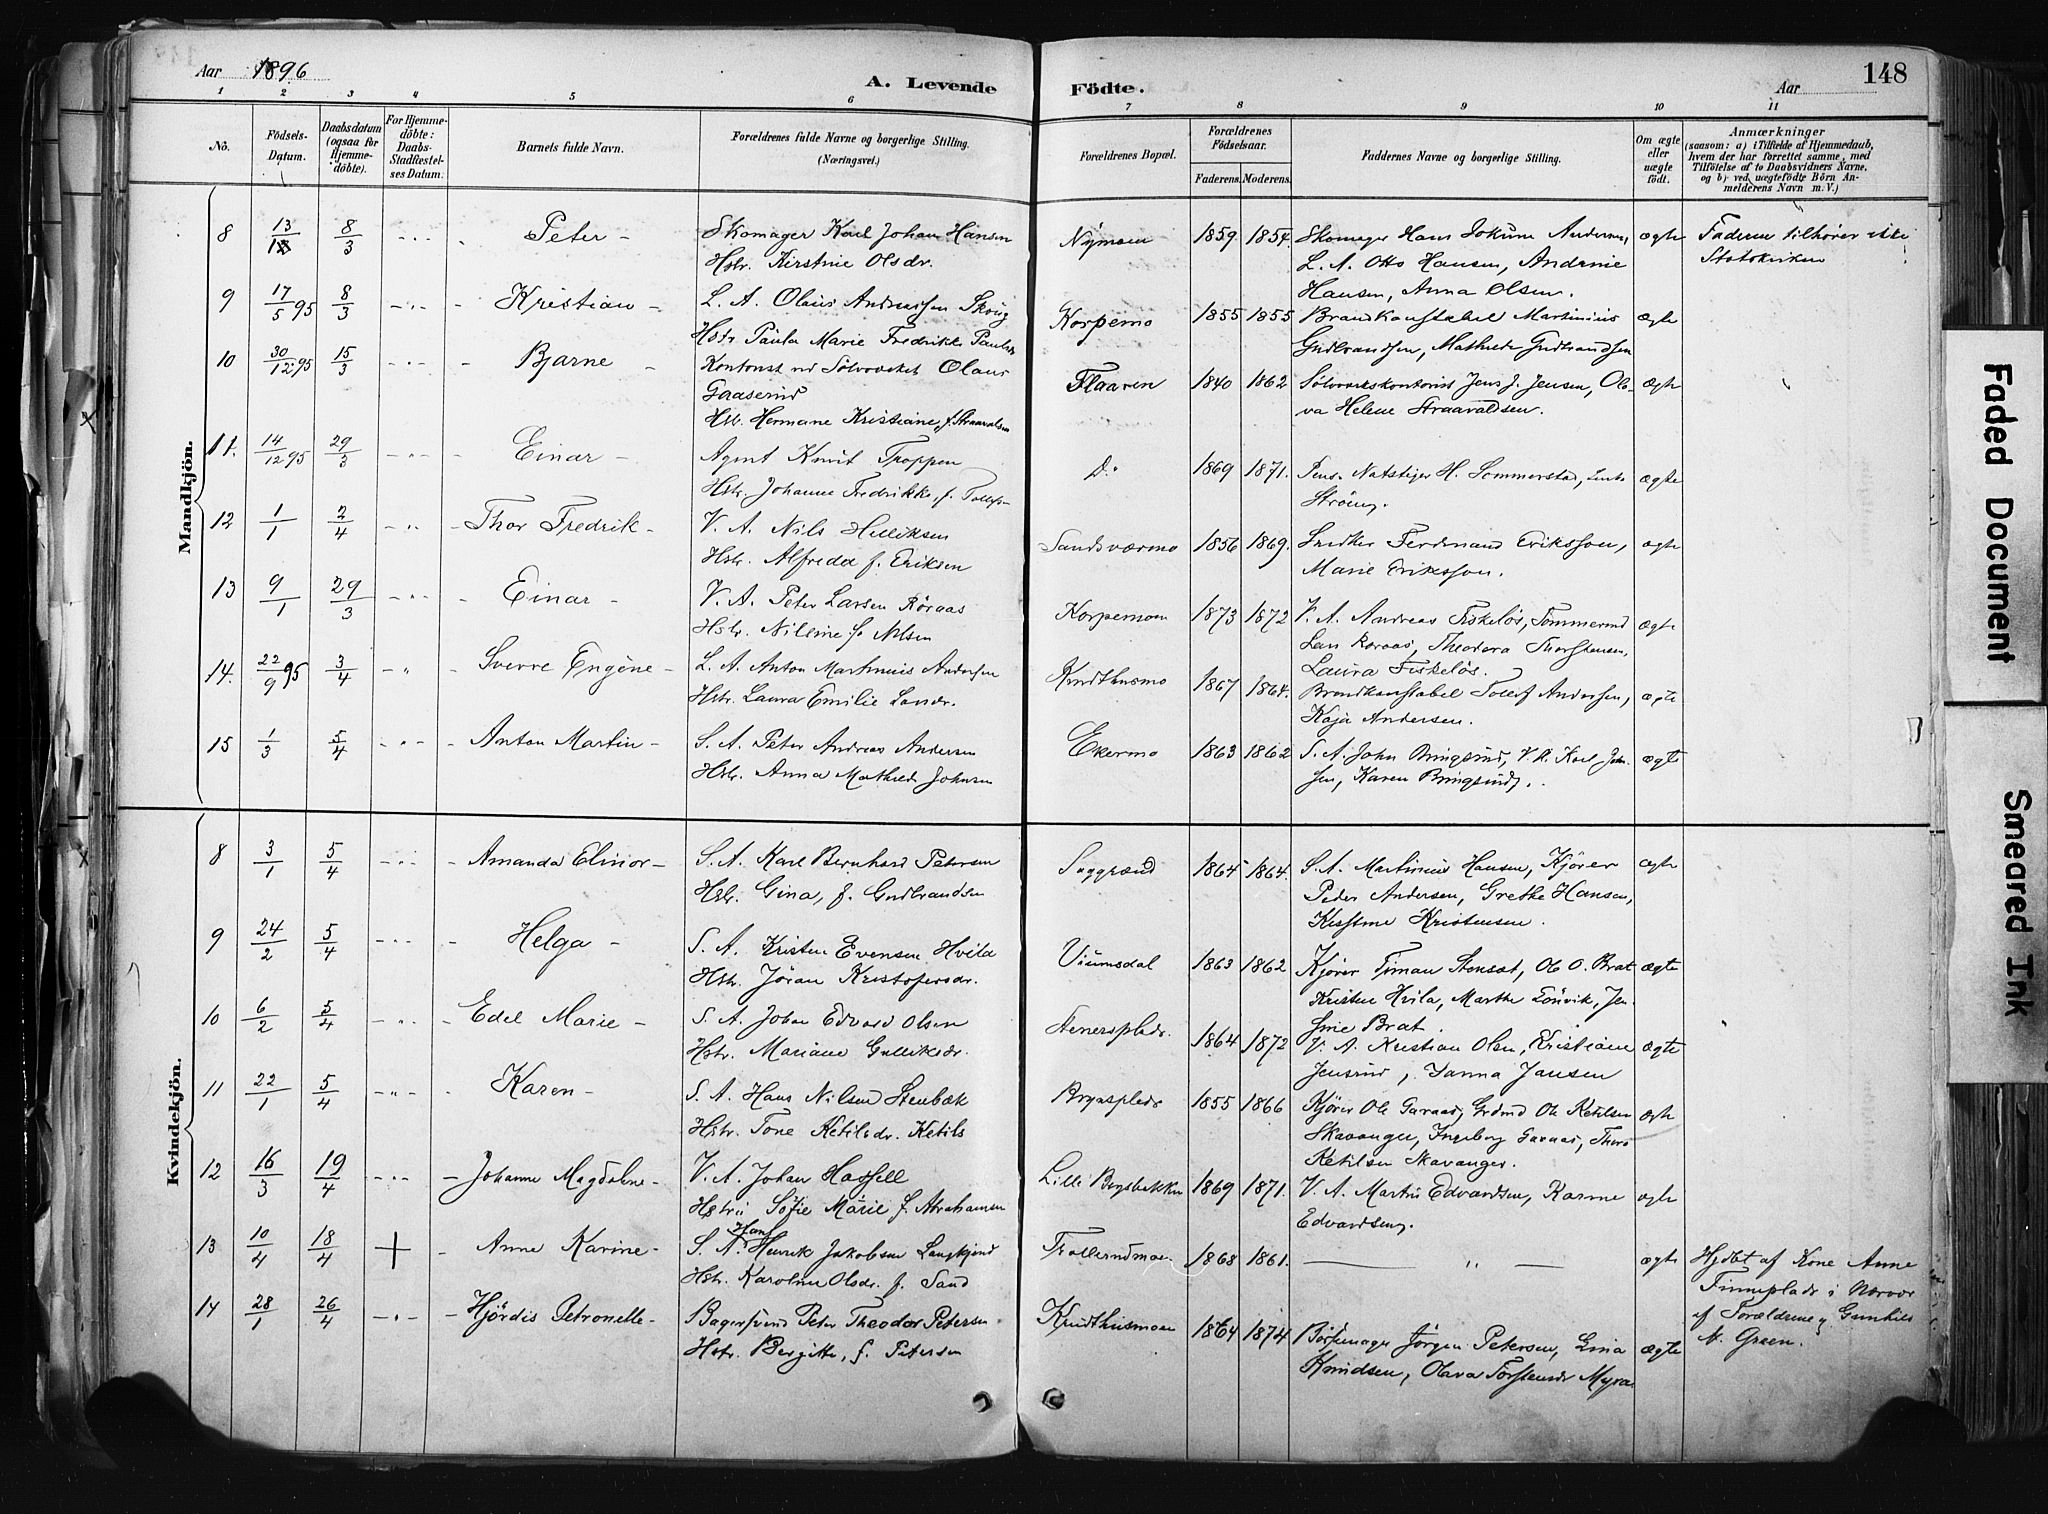 Aar 1896
A. Levende
Födte.
Aar
148
1 2 3 4 5 6 7 8 9 10 11
No.
Födsels-Datum.
Daabsdatum (ogsaa for Hjemme-döbte).
For Hjemme-döbte: Daabs-Stadfæstel-ses Datum.
Barnets fulde Navn.
Forældrenes fulde Navne og borgerlige Stilling. (Næringsvei.)
Forældrenes Bopæl.
Forældrenes Födselsaar.
Faderens. Moderens.
Faddernes Navne og borgerlige Stilling.
Om ægte eller uægte födt.
Anmærkninger
(saasom: a) i Tilfælde af Hjemmedaab,
hvem der har forrettet samme, med
Tilföielse af to Daabsvidners Navne,
og b) ved uægtefödte Börn An-
melderens Navn m. V.)
Mandkjön.
8 13/12 8/3 Peter Skomager Karl Johan Hansen Nymoen 1859 1854 Skomager Hans Jokum Andersen, ægte Faderen tilhører ikke
Hstr. Kirstine Olsdr. L. A. Otto Hansen, Andrine Statskirken
Hansen, Anna Olsen.
9 17/5 95 8/3 Kristian L. A. Olaus Andreassen Skoug Korpemo 1855 1855 Brandkonstabel Martinius ægte
Hstr Paula Marie Fredrikke Paulsdr Gudbrandsen, Mathilde Gudbrandsen
10 30/12 95 15/3 Bjarne Kontorist ved Sølvverket Olaus Flaaten 1840 1862 Sølvverkskontorist Jens J. Jensen, Ol- ægte
Gaaserud va Helene Straavaldsen.
Hstr. Hermane Kristiane, f. Straavaldsen
11. 14/12 95 29/3 Einar Agent Knut Troppen Do 1869 1871. Pens. Natstiger H. Sommerstad, ægte
Hstr. Johanne Fredrikke, f. Strøm.
12 1/1 2/4 Thor Fredrik V. A. Nils Helliksen Sandsværmo 1856 1869. Snedker Ferdinand Eriksson, ægte
Hstr. Alfreda f. Eriksen Marie Eriksson.
13 9/1 29/3 Einar V. A. Peter Larsen Röraas Korpemoen 1873 1872 V. A. Andreas Fiskelös, Tømmermd ægte
Hstr. Niline f. Nilsen Lars Roraas, Theodora Thorstensen,
Laura Fiskelös.
14. 22/9 95 3/4 Sverre Eugène L. A. Anton Martinius Andersen Knudthusmo 1867 1864. Brandkonstabel Tollef Andersen, ægte
Hstr. Laura Emilie Larsdr. Kaja Andersen.
15 1/3 5/4 Anton Martin S. A. Peter Andreas Andersen Ekermo 1863 1862 S. A. John Bingsrud, V. A. Karl Jo- ægte
Hstr. Anna Mathilde Johnsen sen, Karen Bingsrud.
Kvindekjön.
8 3/1 5/4 Amanda Elinor S. A. Karl Bernhard Petersen Saggrænd 1864 1864. S. A. Martinius Hansen, Kjører ægte
Hstr. Gina, f. Gudbrandsen Peder Andersen, Grethe Hansen,
Kirstine Kristensen.
9 24/2 5/4 Helga S. A. Kristen Evensen Hvila Viumsdal 1863 1862 Kjører Timan Stensæt, Ole O. Bråt ægte
Hstr. Jöran Kristofersdr. Kristen Hvila, Marthe Lönvik, Jen-
sine Bråt.
10 6/2 5/4 Edel Marie S. A. Johan Edvard Olsen Stenersplads. 1864 1872 V. A. Kristian Olsen, Kristiane ægte
Hstr. Mariane Gulliksdr. Jensrud, Janna Jansen
11 22/1 5/4 Karen S. A. Hans Nilsen Stenbæk Bryasplads 1855 1866 Kjører Ole Garaas, Grdmd Ole Ketilsen ægte
Hstr. Tone Ketilsdr. Ketils Skavanger, Ingeborg Garaas, Thora
Ketilsen Skavanger.
12 16/3 19/4 Johanne Magdalene V. A. Johan Hassell Lille Bergsbakken 1869 1871. V. A. Martin Edvardsen, Karine ægte
Hstr. Sofie Marie f. Abrahamsen Edvardsen.
13 10/4 18/4 + Anne Karine S. A. Hans Henrik Jakobsen Langkjend Trollerudmoen 1868 1861. " ægte Hjdbt af Kone Anne
Hstr. Karoline Olsdr. f. Sand Finneplads i Nærvær
af Forældrene og Gunhild
N. Green.
14 28/1 26/4 Hjördis Petronelle Bagersvend Peter Theodor Petersen Knudthusmoen 1864 1874 Børsemager Jørgen Petersen, Lina ægte
Hstr. Bergitte, f. Petersen Knudsen, Olava Torstensdr Myra
Faded Document
Smeared Ink